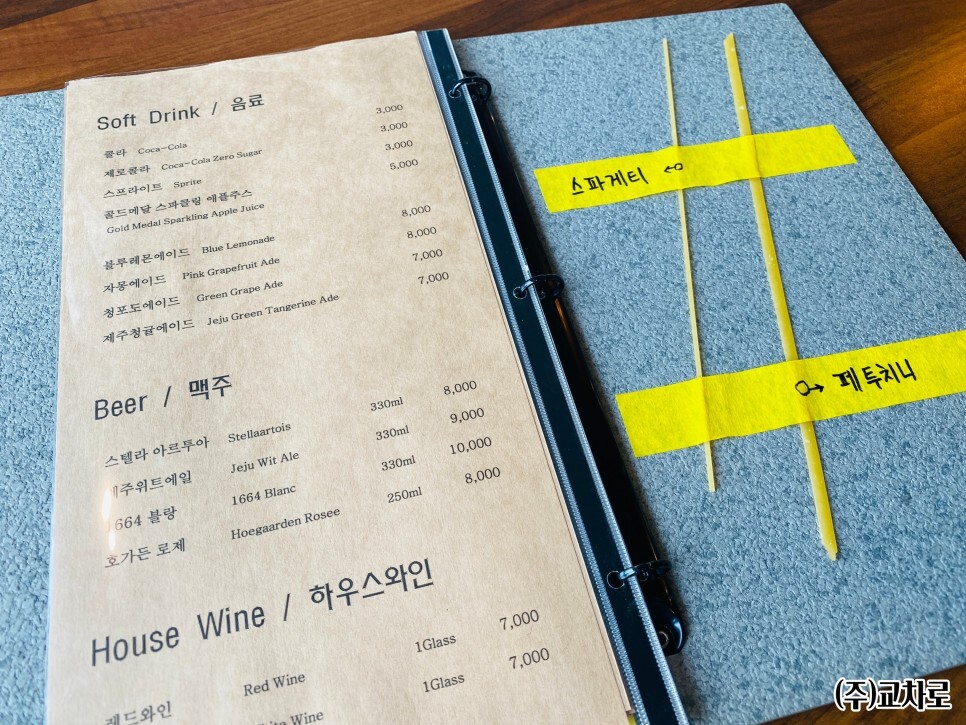 Soft Drink / 음료
콜라 Coca-Cola 3,000
제로콜라 Coca-Cola Zero Sugar 3,000
스프라이트 Sprite 3,000
골드메달 스파클링 애플주스 5,000
Gold Medal Sparkling Apple Juice
블루레몬에이드 Blue Lemonade 8,000
자몽에이드 Pink Grapefruit Ade 8,000
청포도에이드 Green Grape Ade 7,000
제주청귤에이드 Jeju Green Tangerine Ade 7,000
Beer / 맥주
스텔라 아르투아 Stellaartois 330ml 8,000
제주위트에일 Jeju Wit Ale 330ml 9,000
1664 블랑 1664 Blanc 330ml 10,000
호가든 로제 Hoegaarden Rosee 250ml 8,000
House Wine / 하우스와인
레드와인 Red Wine 1Glass 7,000
Wine 1Glass 7,000
스파게티 ↔
↔ 페투치니
(주)교차로